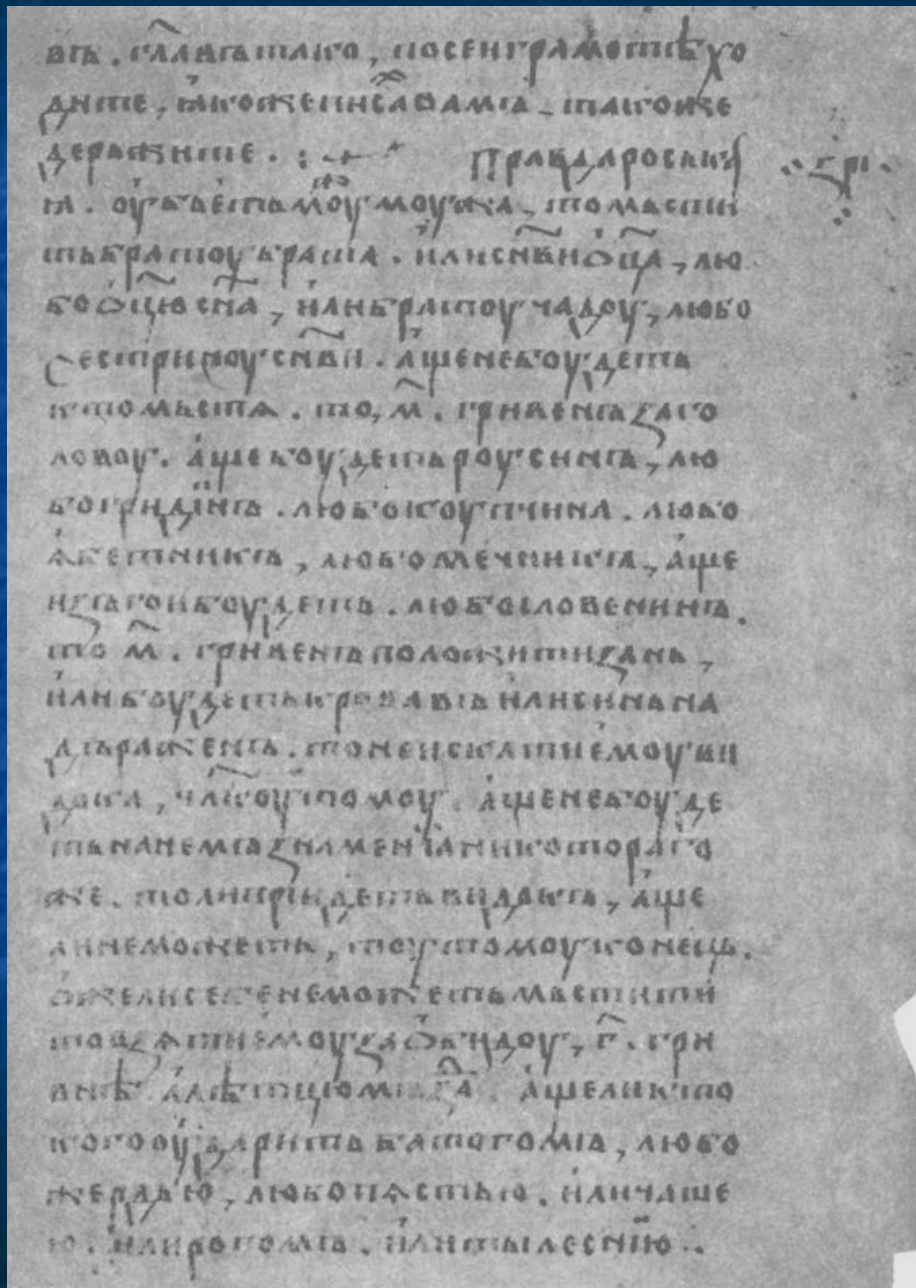 въ. гл҃аимътако, посеиграмотѣхо
дите, ꙗкожеписа̑вамъ. такоже
держите. :·+· Правдароськаꙗ
ꙗ. оубьетьмоѵ̑моужа, томьсти
тьбратоубрата. илисн҃ви҆ѡц҃а, лю
боѡц҃юсн҃а, илибратоучадоу, любо
сестриноусн҃ви. ащенебоудеть
ктомьстѧ. то, м҃. гривенъзаго
ловоу. ащебоудетьроусинъ, лю
богридинъ. любокоупчина. любо
ѧбетникъ, любомечникъ, аще
изъгоибоудеть. любословенинъ.
то м҃. гривенъположитизань,
илибоудетькровавъилисиньна
дъраженъ. тонеискатиемоуви
дока, чл҃коутомоу. ащенебоуде
тьнанемъзнаменїаникотораго
же. толиприидетьвидокъ, аще
линеможеть, тоутомоуконець.
ѡжелисебенеможетьмьстити
товзѧтиемоузаѡбидоу, г҃. гри
внѣ алѣтцюмъз҃а ащеликто
когооударитьбатогомъ, любо
жердью, любопѧстью. иличаше
ю. илирогомъ. илитылеснїю..